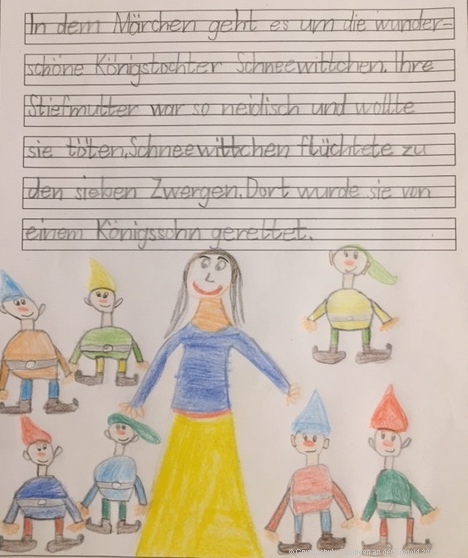 In dem Märchen geht es um die wunder=
schöne Königstochter Schneewittchen. Ihre
Stiefmutter war so neidisch und wollte
sie töten. Schneewittchen flüchtete zu
den sieben Zwergen. Dort wurde sie von
einem Königssohn gerettet.